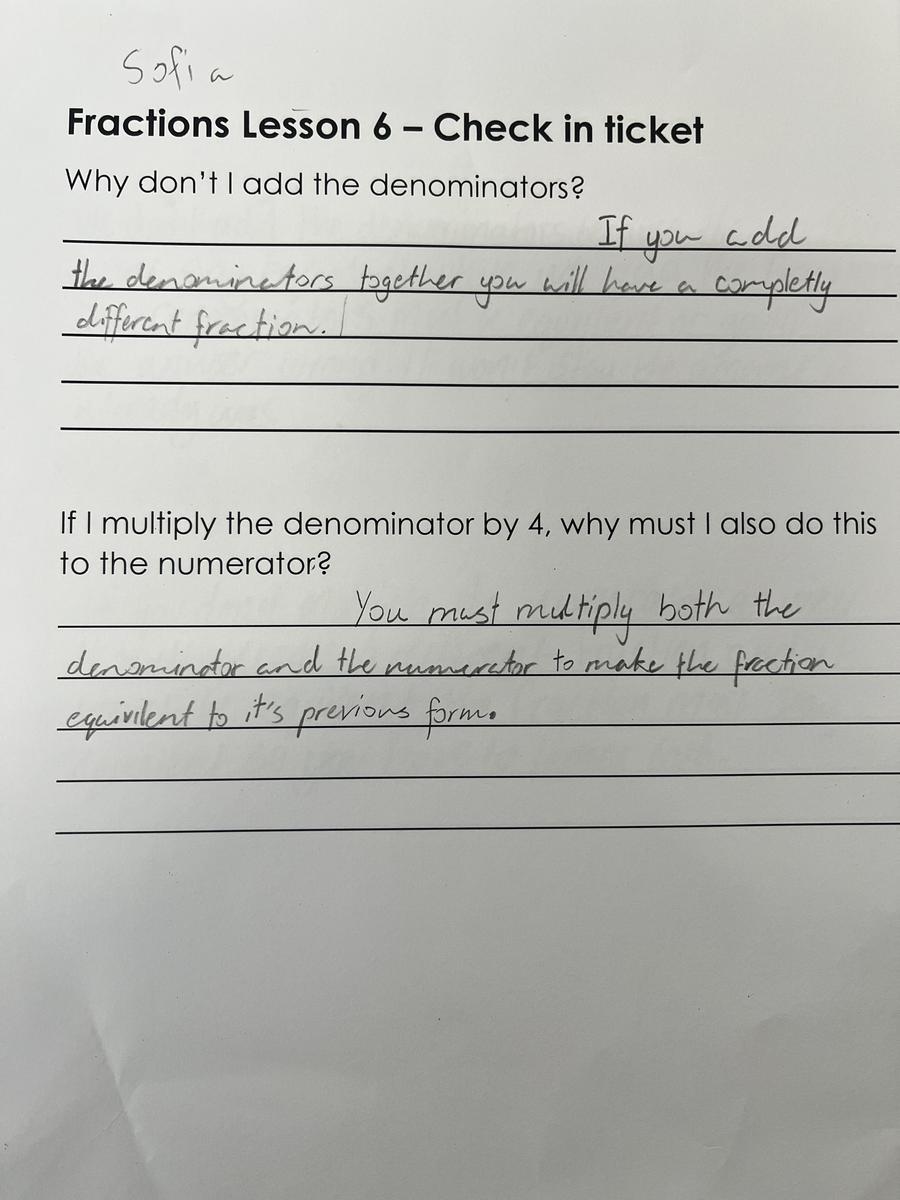 Sofia
Fractions Lesson 6 – Check in ticket
Why don't I add the denominators?
If you add
the denominators together you will have a completly
different fraction.
If I multiply the denominator by 4, why must I also do this
to the numerator?
You must multiply both the
denominator and the numerator to make the fraction
equivilent to it's previous form.